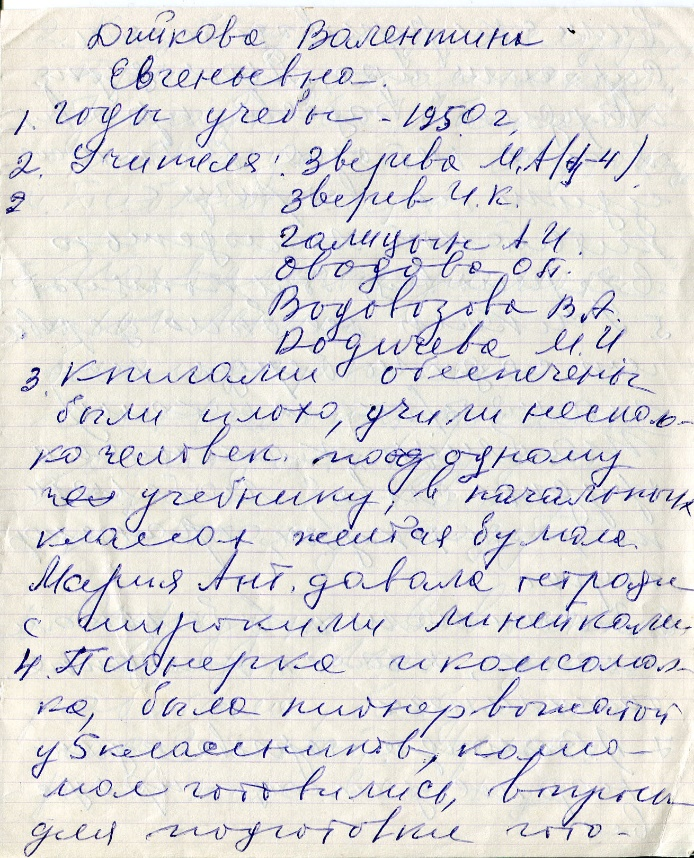 Дийкова Валентина
Евгеньевна.
1. Годы учебы - 1950 г,
2. Учителя: Зверева М.А (1-4)
2 Зверев И.К.
Галицын А.И.
Оводова О.П.
Водовозова В.А.
Додычева М.И
3. Книгами обеспечены
были плохо, учили несколь-
ко человек по одному
учебнику, в начальных
классах желтая бумага.
Мария Ант. давала тетради
с широкими линейками.
4. Пионерка и комсомол-
ка, была пионервожатой
у 5классников, комсо-
мол готовились, вопросы
для подготовки гото-